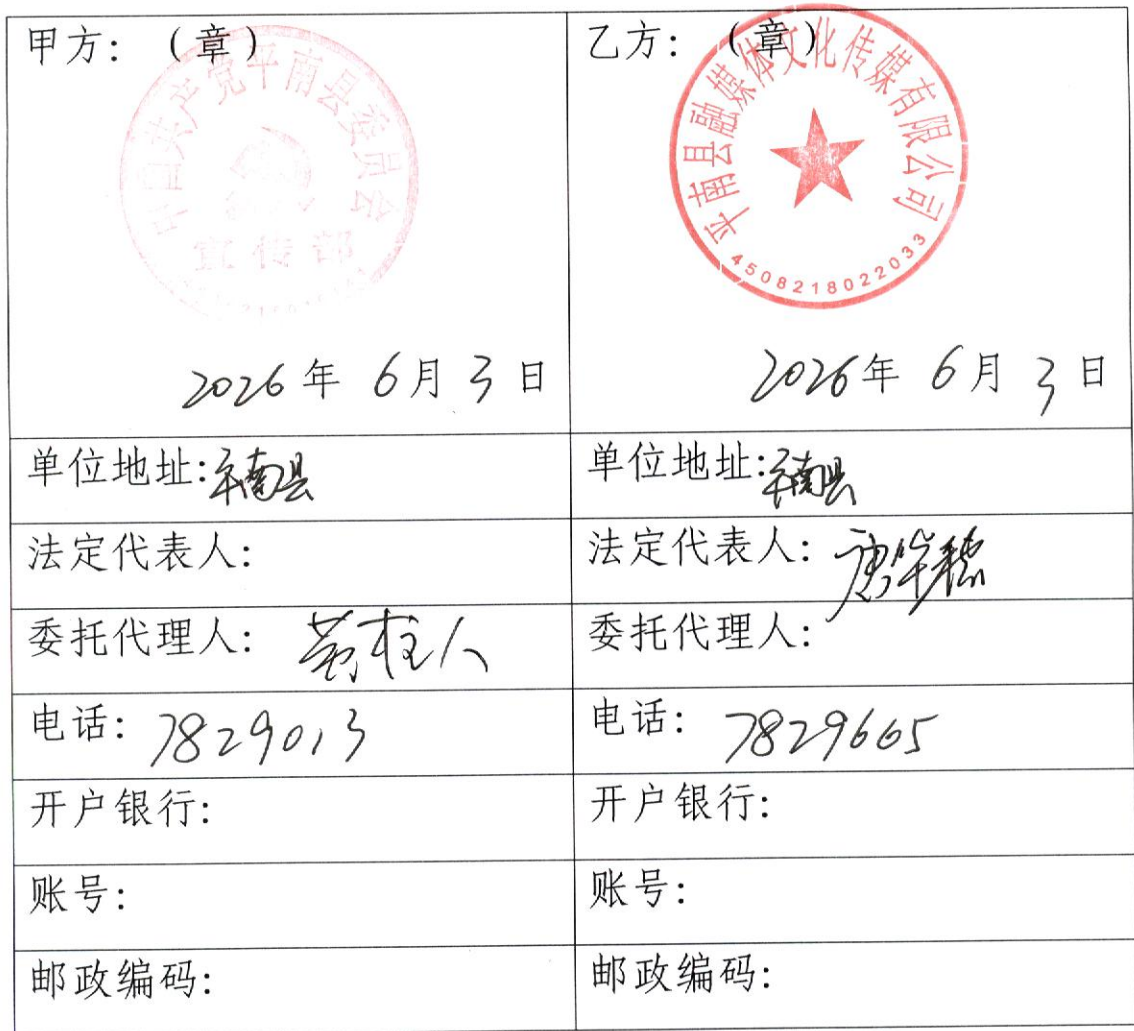 甲方：（章）
中国共产党平南县委员会
宣传部
2026年 6月 3日
乙方：（章）
平南县融媒体文化传媒有限公司
4508218022033
2026年 6月 3日
单位地址:平南县
单位地址:平南县
法定代表人:
法定代表人:
委托代理人:
委托代理人:
电话: 7829013
电话: 7829665
开户银行:
开户银行:
账号:
账号:
邮政编码:
邮政编码: